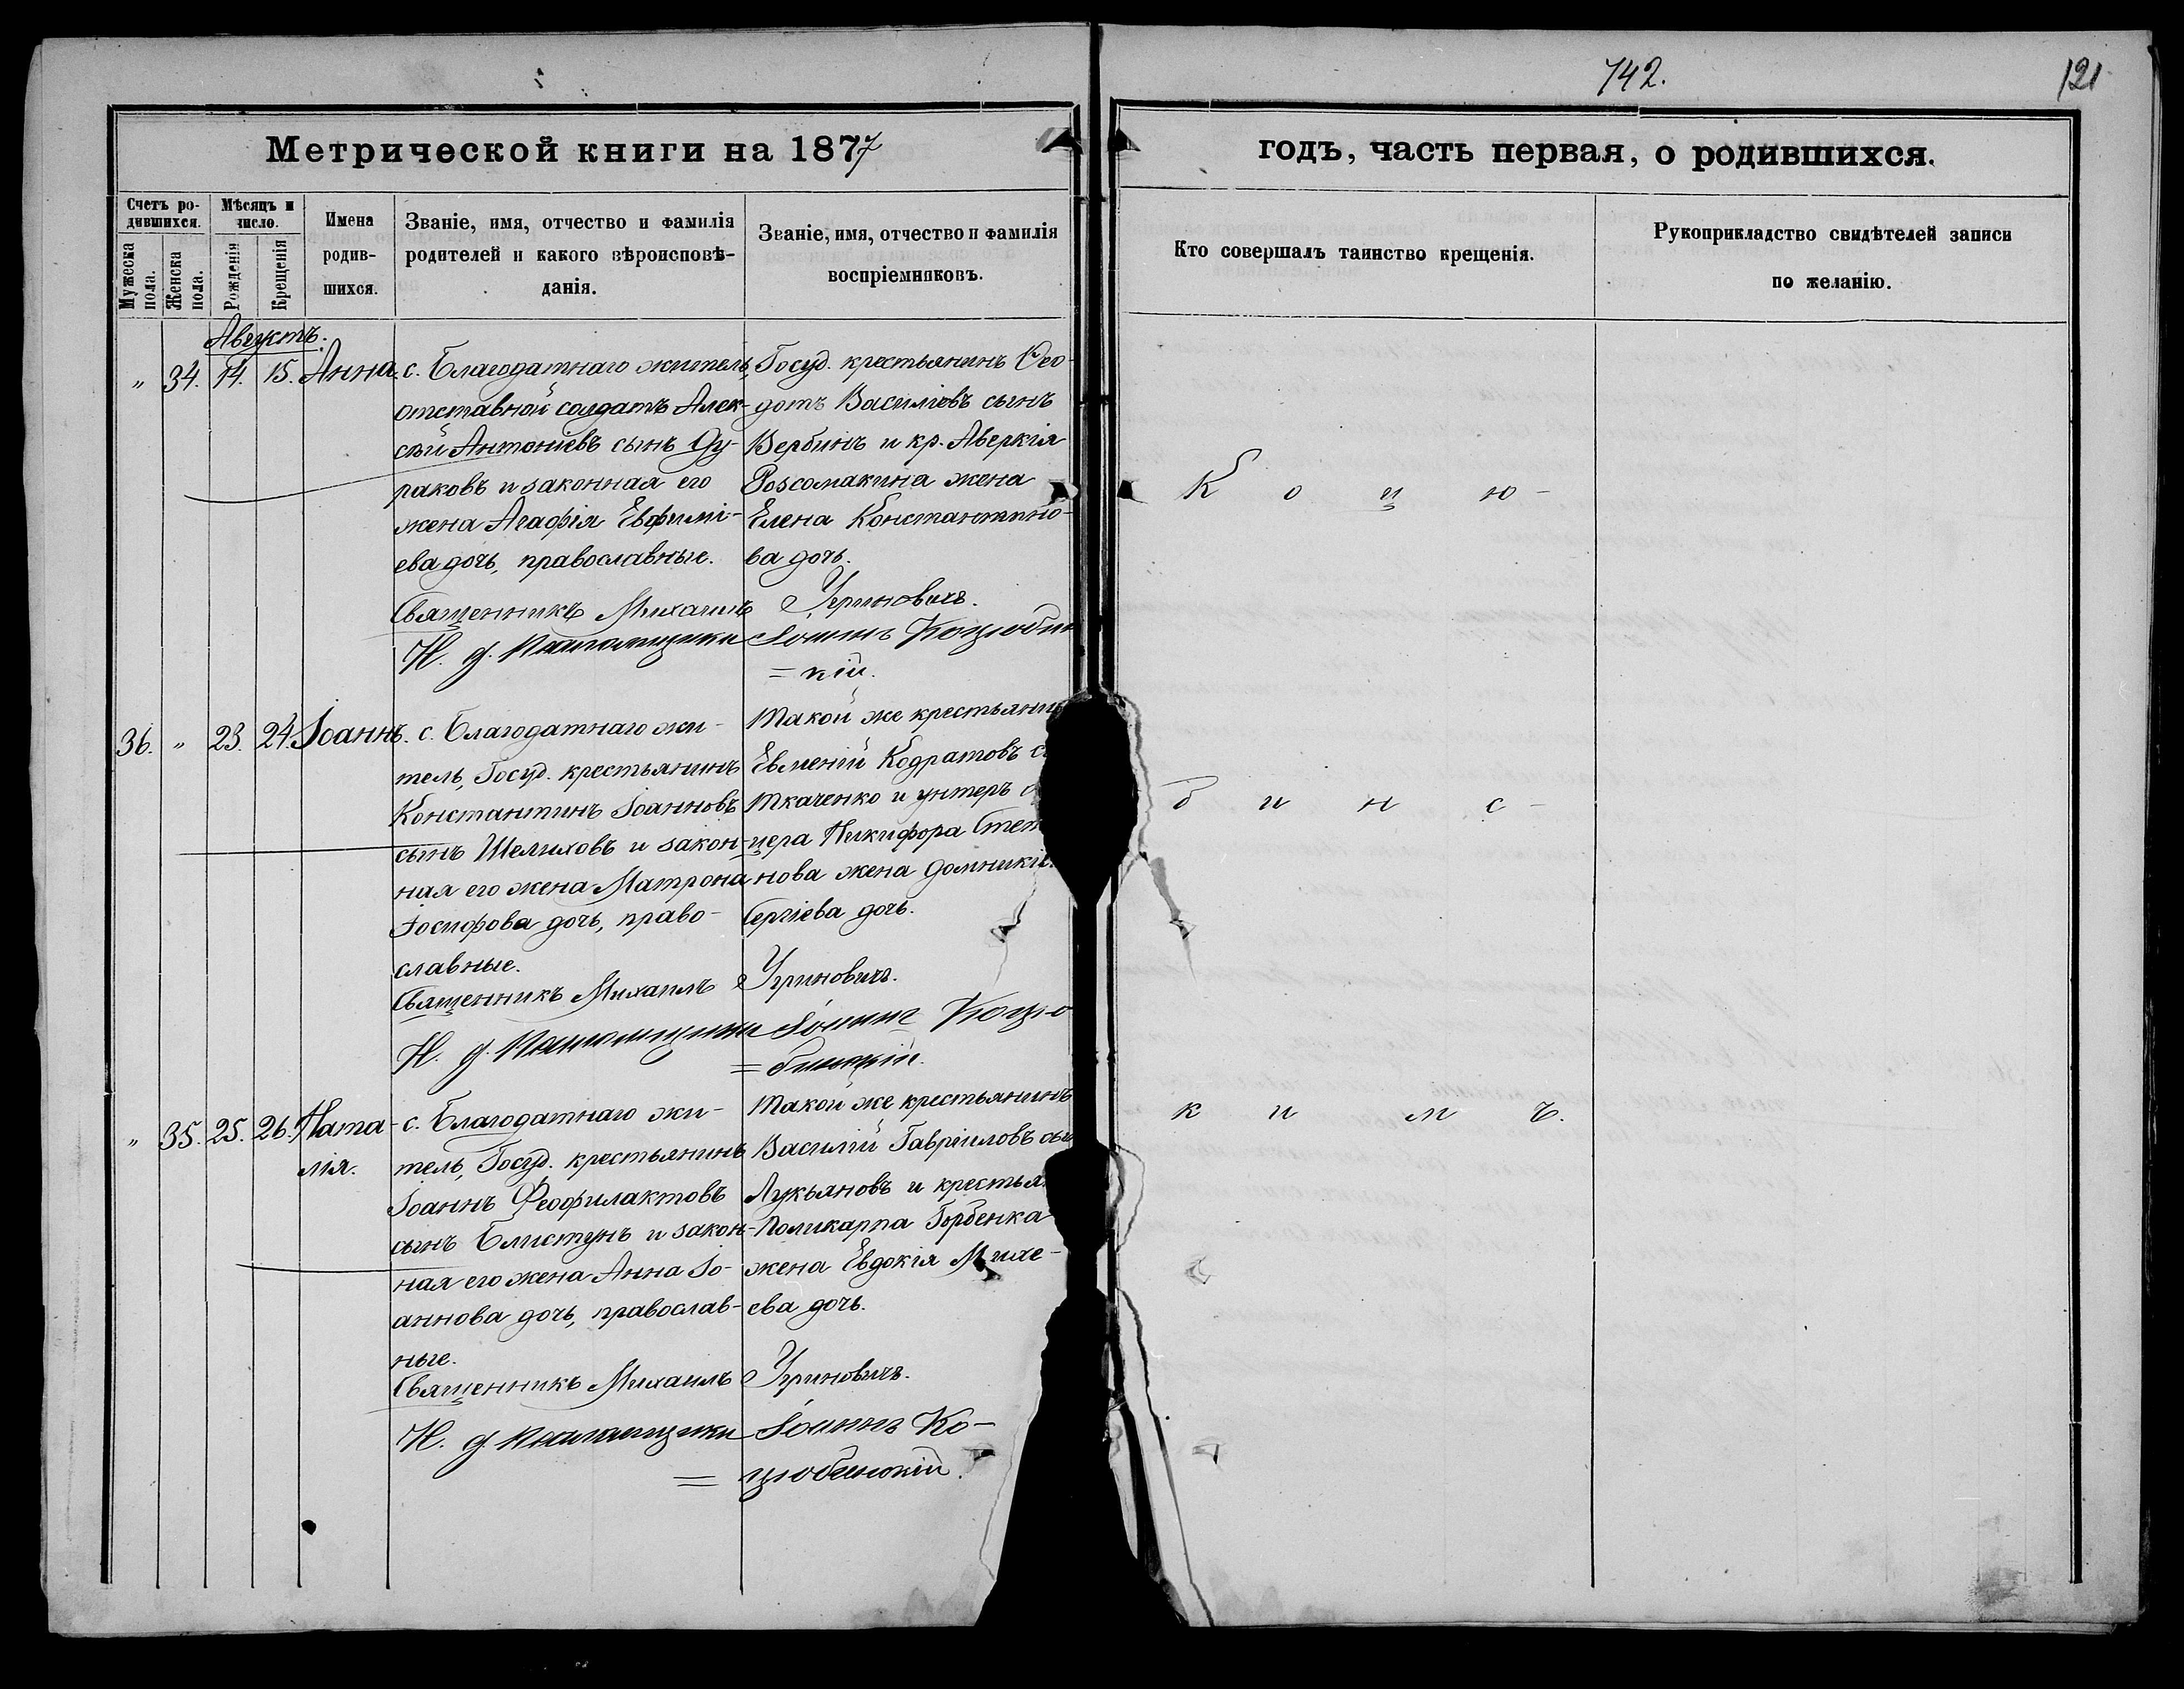 742.
121
Метрической книги на 1877
годъ, часть первая, о родившихся.
Счетъ ро-
дившихся.
Мужеска
пола.
Женска
пола.
Мѣсяцъ и
число.
Рожденія
Крещенія
Имена
родив-
шихся.
Званіе, имя, отчество и фамилія
родителей и какого вѣроисповѣ-
данія.
Званіе, имя, отчество и фамилія
воспріемниковъ.
Кто совершалъ таинство крещенія.
Рукоприкладство свидѣтелей записи
по желанію.
Августъ.
" 34. 14. 15. Анна.
с. Благодатнаго житель,
отставной солдатъ Алек-
сѣй Антоніевъ сынъ Ду-
раковъ и законная его
жена Агафія Евфимі-
ева дочь, православные.
Госуд. крестьянинъ Ѳео-
дотъ Василіевъ сынъ
Вербинъ и кр. Аверкія
Россомакина жена
Елена Константино-
ва дочь.
Священникъ Михаилъ Угриновичъ.
И. д. Псаломщика Іоаннъ Коцюбин
= кій.
36. " 23. 24. Іоаннъ.
с. Благодатнаго жи-
тель, Госуд. крестьянинъ
Константинъ Іоанновъ
сынъ Шелиховъ и закон-
ная его жена Матрона
Іосифова дочь, право-
славные.
Такой же крестьянинъ
Евменій Кодратовъ
Ткаченко и унтеръ
цера Никифора Степ
нова жена Домникія
Сергіева дочь.
Священникъ Михаилъ Угриновичъ.
И. д. Псаломщика Іоаннъ Коцю
= бинскій.
" 35. 25. 26. Ната-
лія.
с. Благодатнаго жи-
тель, Госуд. крестьянинъ
Іоаннъ Феофилактовъ
сынъ Блистунъ и закон-
ная его жена Анна Іо-
аннова дочь, православ-
ные.
Такой же крестьянинъ
Василій Гавріиловъ сын
Лукьяновъ и крестьян
Поликарпа Горбенка
жена Евдокія Михе-
ева дочь.
Священникъ Михаилъ Угриновичъ.
И. д. Псаломщика Іоаннъ Ко-
= цюбинскій.
К о ц ю -
б и н с -
к и м ъ.